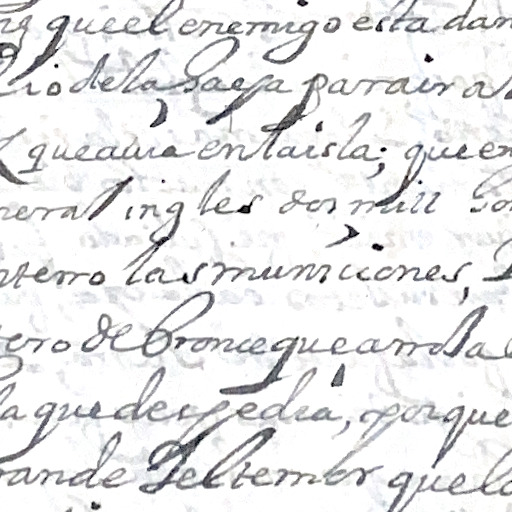 que el enemigo esta dan
de la Haya para ir a
que auia en la isla; que en
neral ingles dos mill
nterro las municiones,
tero de bronce que arrola
la que despedia, porque
rande el temor que